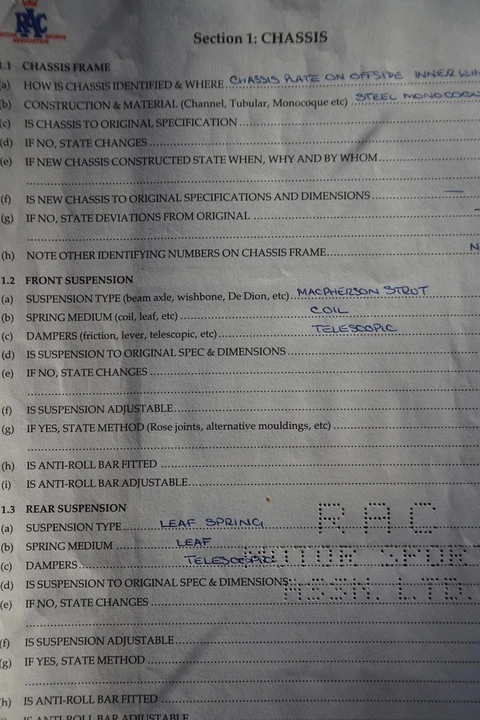 RAC
MOTOR SPORTS
ASSOCIATION
Section 1: CHASSIS
1.1 CHASSIS FRAME
(a) HOW IS CHASSIS IDENTIFIED & WHERE CHASSIS PLATE ON OFFSIDE INNER
(b) CONSTRUCTION & MATERIAL (Channel, Tubular, Monocoque etc) STEEL MONOCOQU
(c) IS CHASSIS TO ORIGINAL SPECIFICATION
(d) IF NO, STATE CHANGES
(e) IF NEW CHASSIS CONSTRUCTED STATE WHEN, WHY AND BY WHOM
(f) IS NEW CHASSIS TO ORIGINAL SPECIFICATIONS AND DIMENSIONS —
(g) IF NO, STATE DEVIATIONS FROM ORIGINAL
(h) NOTE OTHER IDENTIFYING NUMBERS ON CHASSIS FRAME N
1.2 FRONT SUSPENSION
(a) SUSPENSION TYPE (beam axle, wishbone, De Dion, etc) MACPHERSON STRUT
(b) SPRING MEDIUM (coil, leaf, etc) COIL
(c) DAMPERS (friction, lever, telescopic, etc) TELESCOPIC
(d) IS SUSPENSION TO ORIGINAL SPEC & DIMENSIONS
(e) IF NO, STATE CHANGES
(f) IS SUSPENSION ADJUSTABLE
(g) IF YES, STATE METHOD (Rose joints, alternative mouldings, etc)
(h) IS ANTI-ROLL BAR FITTED
(i) IS ANTI-ROLL BAR ADJUSTABLE
1.3 REAR SUSPENSION
(a) SUSPENSION TYPE LEAF SPRING
RAC
(b) SPRING MEDIUM LEAF
MOTOR SPOR
(c) DAMPERS TELESCOPIC
(d) IS SUSPENSION TO ORIGINAL SPEC & DIMENSIONS
ASSN. LTD.
(e) IF NO, STATE CHANGES
(f) IS SUSPENSION ADJUSTABLE
(g) IF YES, STATE METHOD
(h) IS ANTI-ROLL BAR FITTED
IS ANTI-ROLL BAR ADJUSTABLE